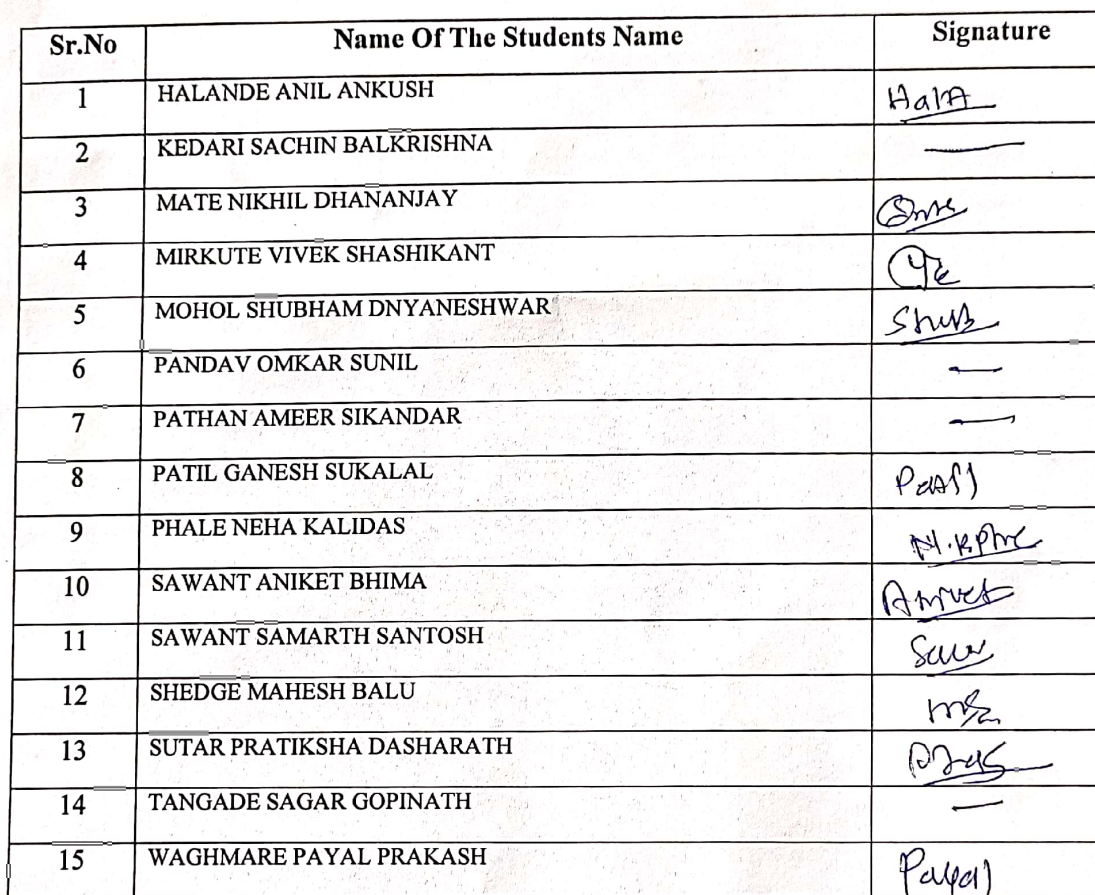 Sr.No Name Of The Students Name Signature
1 HALANDE ANIL ANKUSH
2 KEDARI SACHIN BALKRISHNA —
3 MATE NIKHIL DHANANJAY
4 MIRKUTE VIVEK SHASHIKANT
5 MOHOL SHUBHAM DNYANESHWAR
6 PANDAV OMKAR SUNIL —
7 PATHAN AMEER SIKANDAR —
8 PATIL GANESH SUKALAL
9 PHALE NEHA KALIDAS
10 SAWANT ANIKET BHIMA
11 SAWANT SAMARTH SANTOSH
12 SHEDGE MAHESH BALU
13 SUTAR PRATIKSHA DASHARATH
14 TANGADE SAGAR GOPINATH —
15 WAGHMARE PAYAL PRAKASH Payal